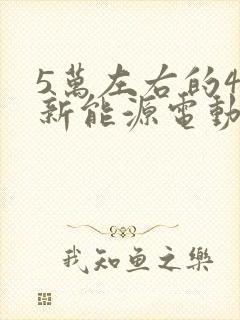 5萬左右的4
新能源電動
我知鱼之樂